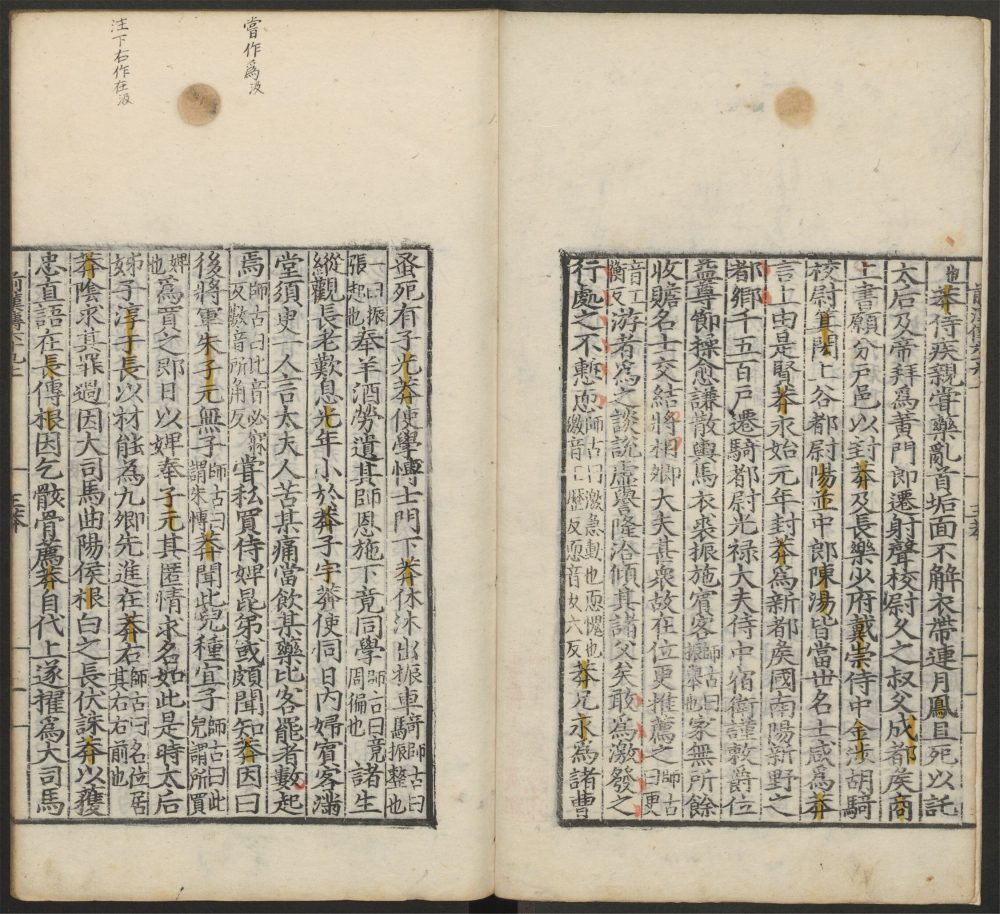 也莽侍疾親嘗藥亂首垢面不解衣帶連月鳳且死以託
太后及帝拜為黃門郎遷射聲校尉久之叔父成都侯商
上書願分戶邑以封莽及長樂少府戴崇侍中金涉胡騎
校尉箕閎上谷都尉陽並中郎陳湯皆當世名士咸為莽
言上由是賢莽永始元年封莽為新都侯國南陽新野之
都鄉千五百戶遷騎都尉光祿大夫侍中宿衛謹敕爵位
益尊節操愈謙散輿馬衣裘振施賓客師古曰振舉也家無所餘
收贍名士交結將相卿大夫甚衆故在位更推薦之師古曰更
音工衡反游者為之談說虛譽隆洽傾其諸父矣敢為激發之
行處之不慙恧師古曰激急動也恧愧也激音工歷反恧音女六反莽兄永為諸曹
蚤死有子光莽使學博士門下莽休沐出振車騎師古曰振整也
一曰振張起也奉羊酒勞遺其師恩施下竟同學師古曰竟周徧也諸生
縱觀長老歎息光年小於莽子宇莽使同日內婦賓客滿
堂須臾一人言太夫人苦某痛當飲某藥比客罷者數起
焉師古曰比音必寐反數音所角反嘗私買侍婢昆弟或頗聞知莽因曰
後將軍朱子元無子師古曰謂朱博莽聞此兒種宜子師古曰此兒謂所買
婢也為買之即日以婢奉子元其匿情求名如此是時太后
姊子淳于長以材能為九卿先進在莽右師古曰名位居其右右前也
莽陰求其罪過因大司馬曲陽侯根白之長伏誅莽以獲
忠直語在長傳根因乞骸骨薦莽自代上遂擢為大司馬
嘗作為汲
注下右作在汲